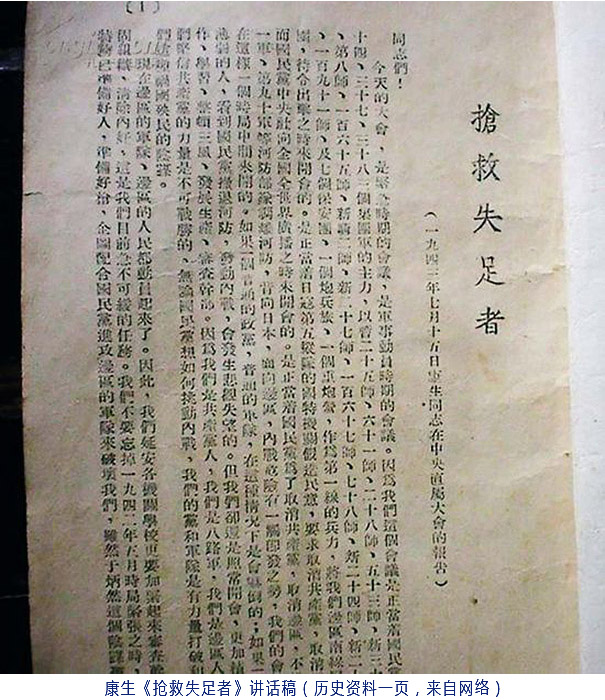 搶救失足者
(一九四三年七月十五日康生同志在中央直屬大會的報告)
同志們!
今天的大會，是緊急時期的會議，是軍事動員時期的會議。因為我們這個會議是正當着國民黨
十四、三十七、三十八三個集團軍的主力，以暫二十五師、六十一師、二十八師、五十三師、新三
、第八師、一百六十五師、新第二師、二十七師、一百六十七師、七十八師、新二十四師、新二
、一百九十一師、及七個保安團、一個炮兵旅、一個重炮營，作為第一線的兵力，將我們邊區南線
圍，待令出擊之時來開會的。是正當着日寇第五縱隊的國特機關假造民意，要求取消共產黨，取消
而國民黨中央社向全國全世界廣播之時來開會的。是正當着國民黨為了取消共產黨，取消邊區，不
一軍、第九十軍等河防部隊調離河防，背向日本，面向邊區，內戰危險有一觸即發之勢，我們的會
在這樣一個時局中間來開的。如果一個普通的政黨，普通的軍隊，在這種情況下是會嚇倒的；如果一
薄弱的人，看到國民黨撤退河防，發動內戰，會發生悲觀失望的。但我們卻還是照常開會，更加積
作、學習、整頓三風、發展生產、審查幹部。因為我們是共產黨人，我們是八路軍，我們是邊區人
們堅信共產黨的力量是不可戰勝的。無論國民黨想如何挑動內戰，我們的黨和軍隊是有力量打破
們這種禍國殃民的陰謀。
現在邊區的軍隊、邊區的人民都動員起來了。因此，我們延安各機關學校更要加緊起來審查幹
固組織、清除內奸，這是我們目前急不可緩的任務。我們不要忘掉一九四二年五月時局緊張之時，
特務已準備好人，準備好槍，企圖配合國民黨進攻邊區的軍隊來破壞我們，雖然于炳然這個陰謀
(1)
康生《抢救失足者》讲话稿（历史资料一页，来自网络）